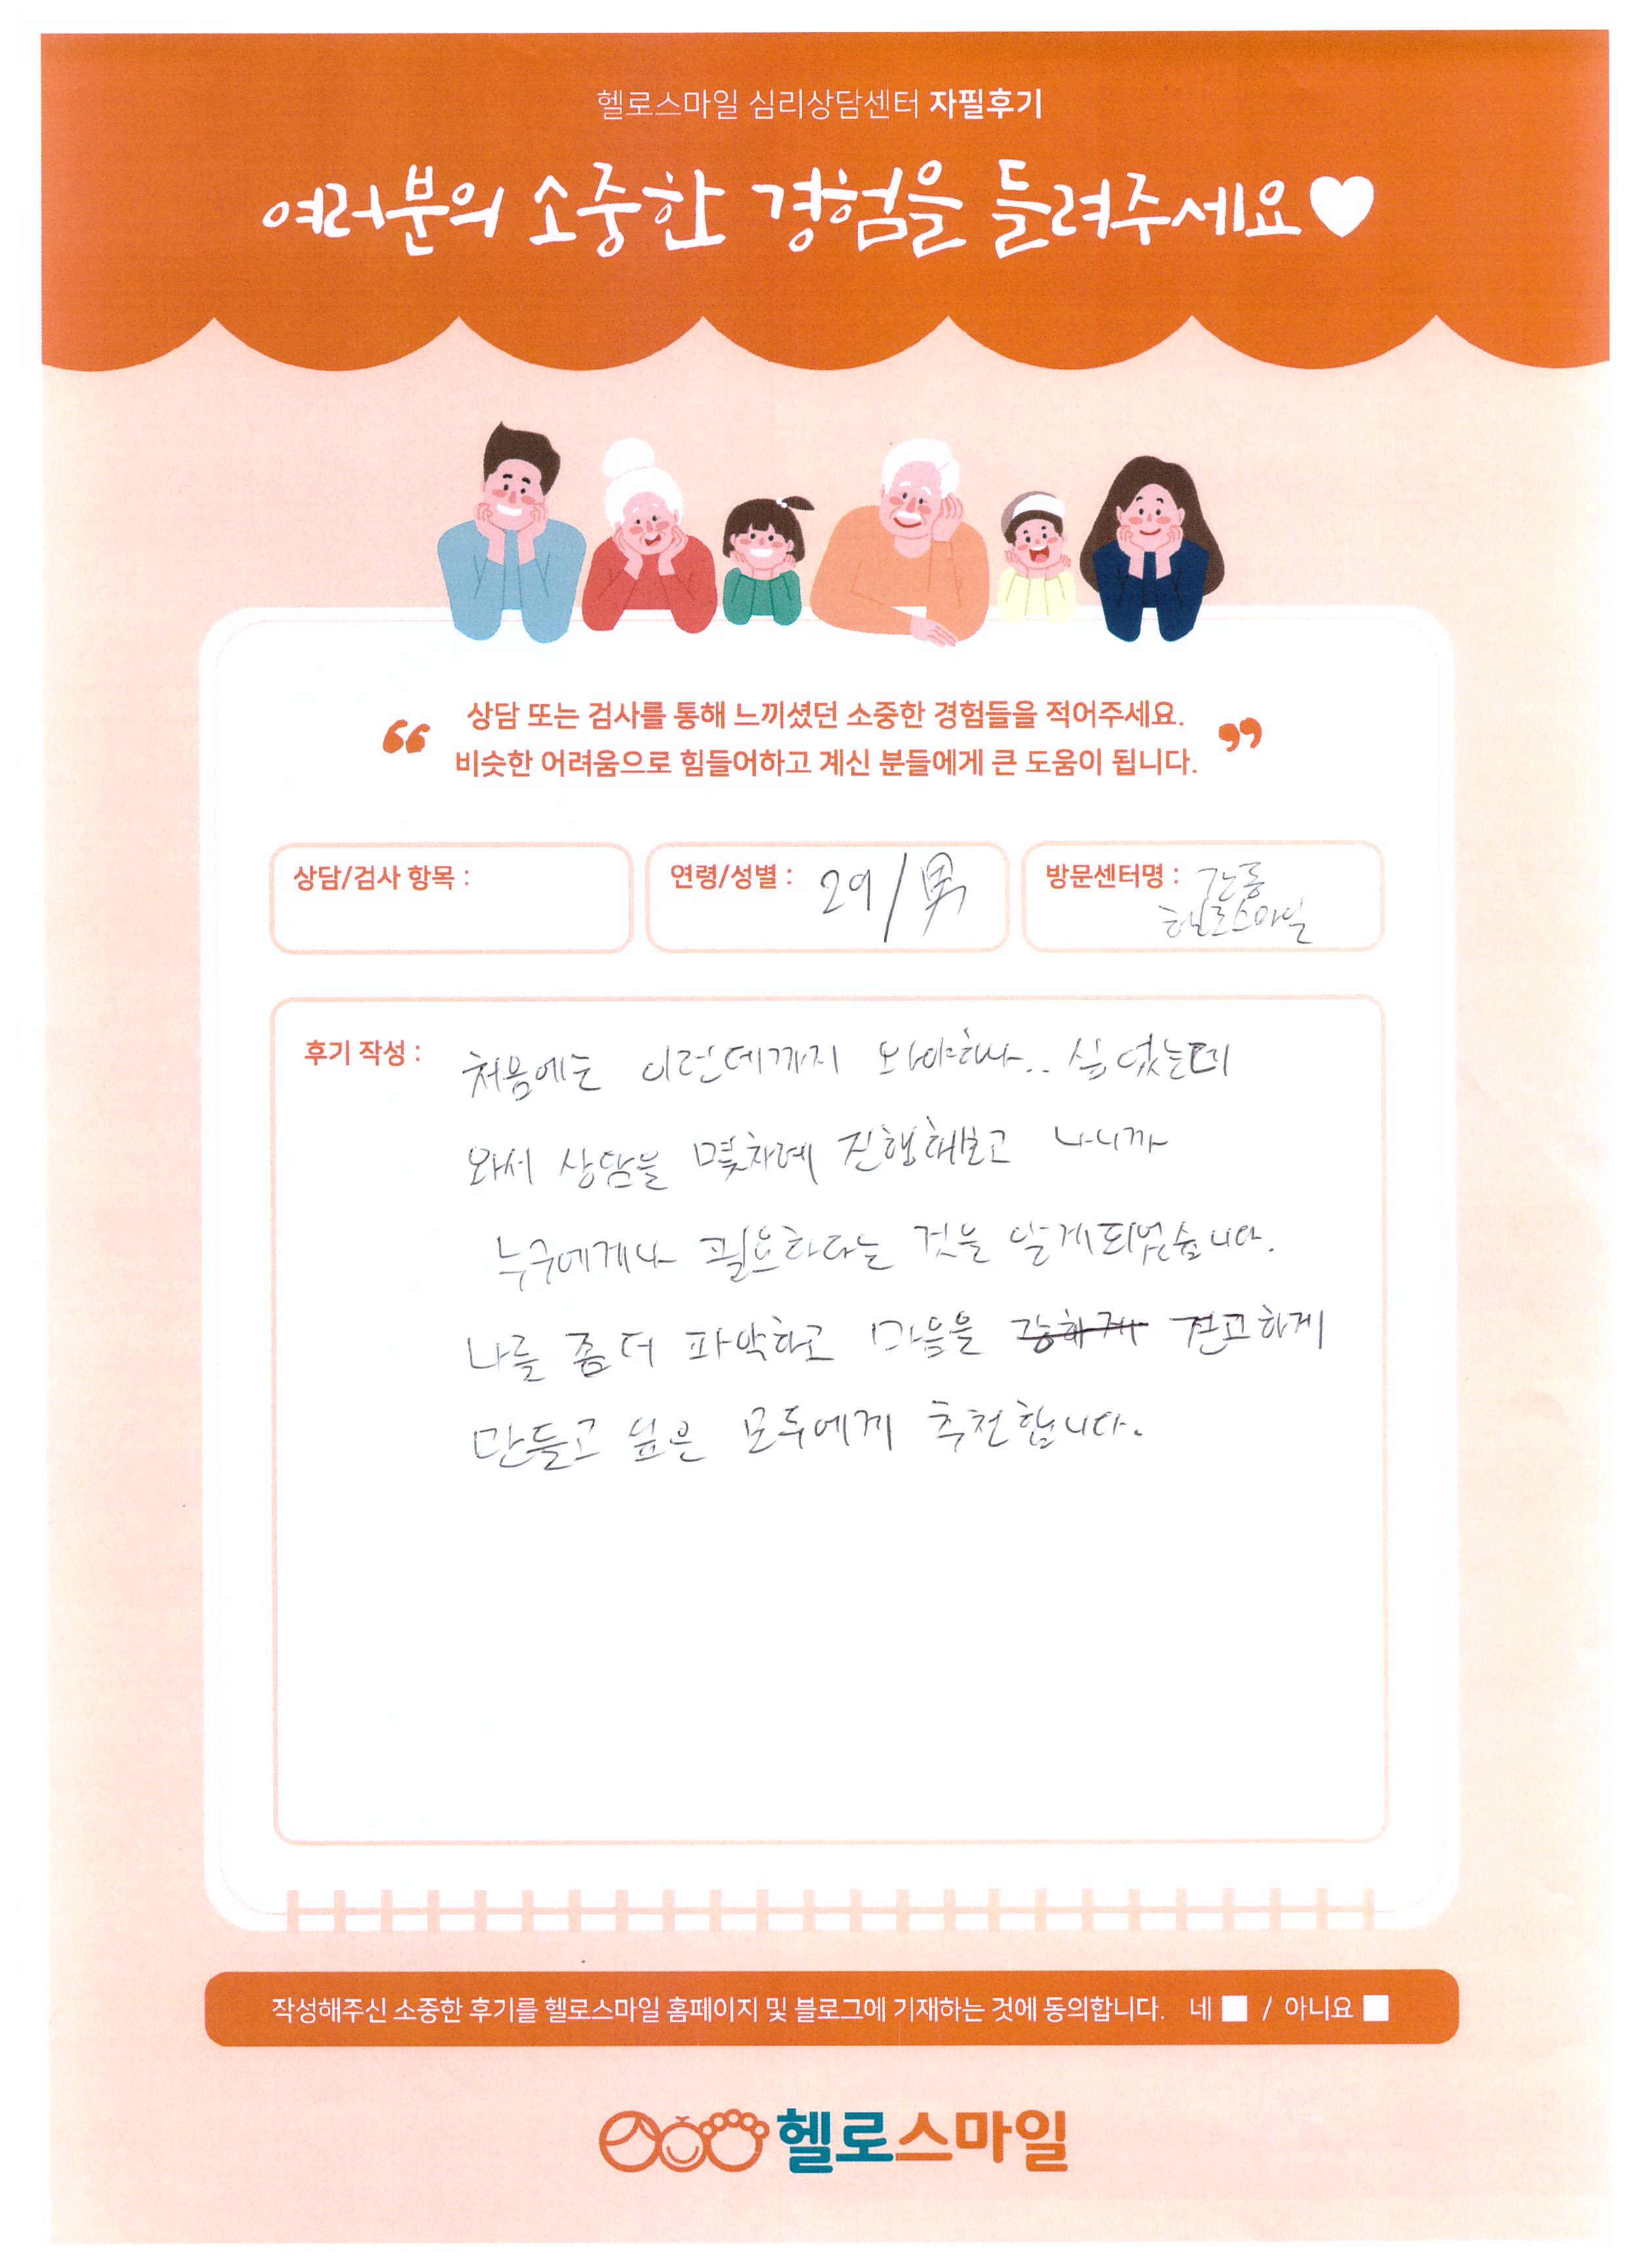 헬로스마일 심리상담센터 자필후기
여러분의 소중한 경험을 들려주세요
상담 또는 검사를 통해 느끼셨던 소중한 경험들을 적어주세요.
비슷한 어려움으로 힘들어하고 계신 분들에게 큰 도움이 됩니다.
상담/검사 항목 :
연령/성별 : 29/男
방문센터명 : 강릉
헬로스마일
후기 작성 : 처음에는 이런데까지 와야하나.. 싶었는데
와서 상담을 몇차례 진행해보고 나니까
누구에게나 필요하다는 것을 알게되었습니다.
나를 좀 더 파악하고 마음을 강하게 견고하게
만들고 싶은 모두에게 추천합니다.
작성해주신 소중한 후기를 헬로스마일 홈페이지 및 블로그에 기재하는 것에 동의합니다. 네 / 아니요
헬로스마일